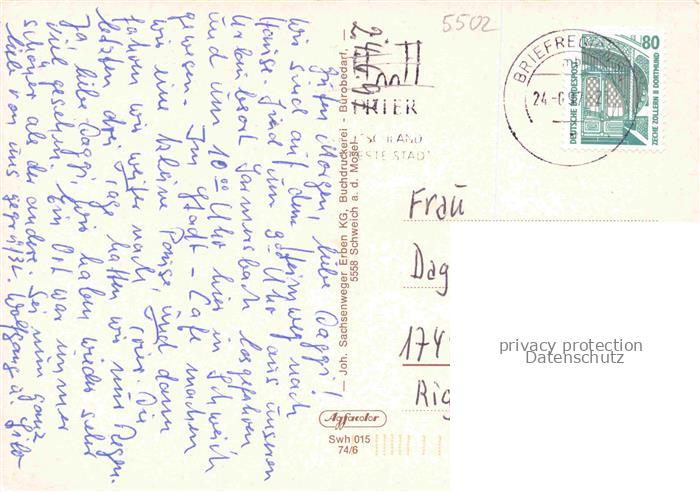 5502
24.6.97
Guten Morgen, liebe Daggi!
Wir sind auf dem Heimweg nach
Hause. Sind um 9 Uhr aus unseren
Urlaubsort losgefahren
und um 10 00 Uhr hier in Schweich
gewesen. Im Stadt-Cafe machen
wir eine kleine Pause und dann
fahren wir weiter nach Trier. Die
letzten drei Tage hatten wir nur Regen.
Ja, liebe Daggi, wir haben wieder sehr
viel gesehen. Ein Ort war immer
schöner als der andere. Sei nun ganz
lieb von uns gegrüßt. Wolfgang u.
TRIER
DEUTSCHLAND
STADT
Joh. Sachsenweger Erben KG, Buchdruckerei - Bürobedarf,
5558 Schweich a. d. Mosel
Agfacolor
Swh 015
74/6
BRIEFRE
24-6
80
DEUTSCHE BUNDESPOST
ZECHE ZOLLERN II DORTMUND
Frau
Dag
174
Rig
privacy protection
Datenschutz